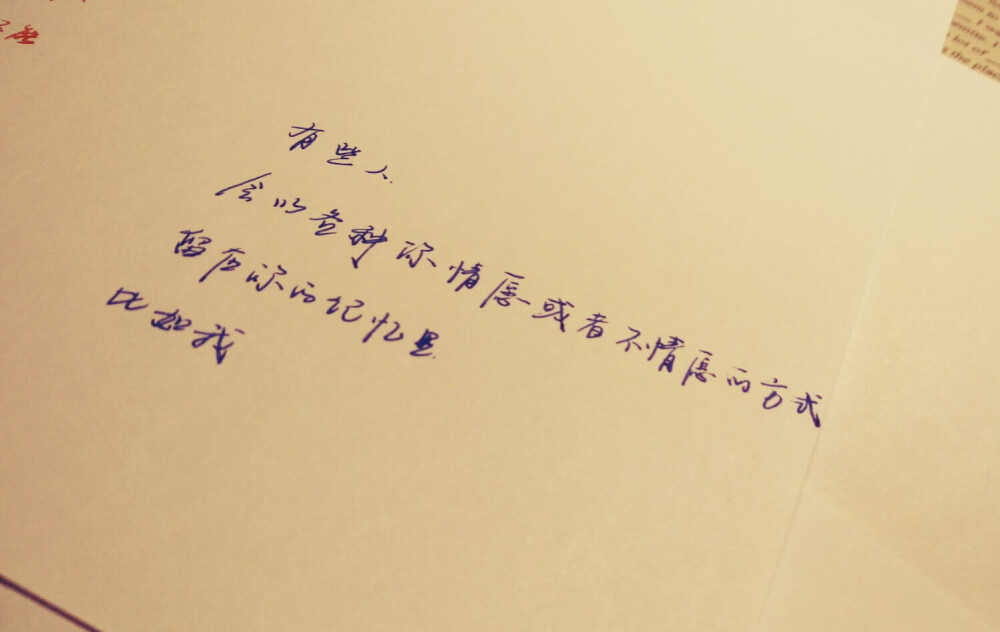 有些人
会以各种你情愿或者不情愿的方式
留在你的记忆里
比如我
lot of
the place